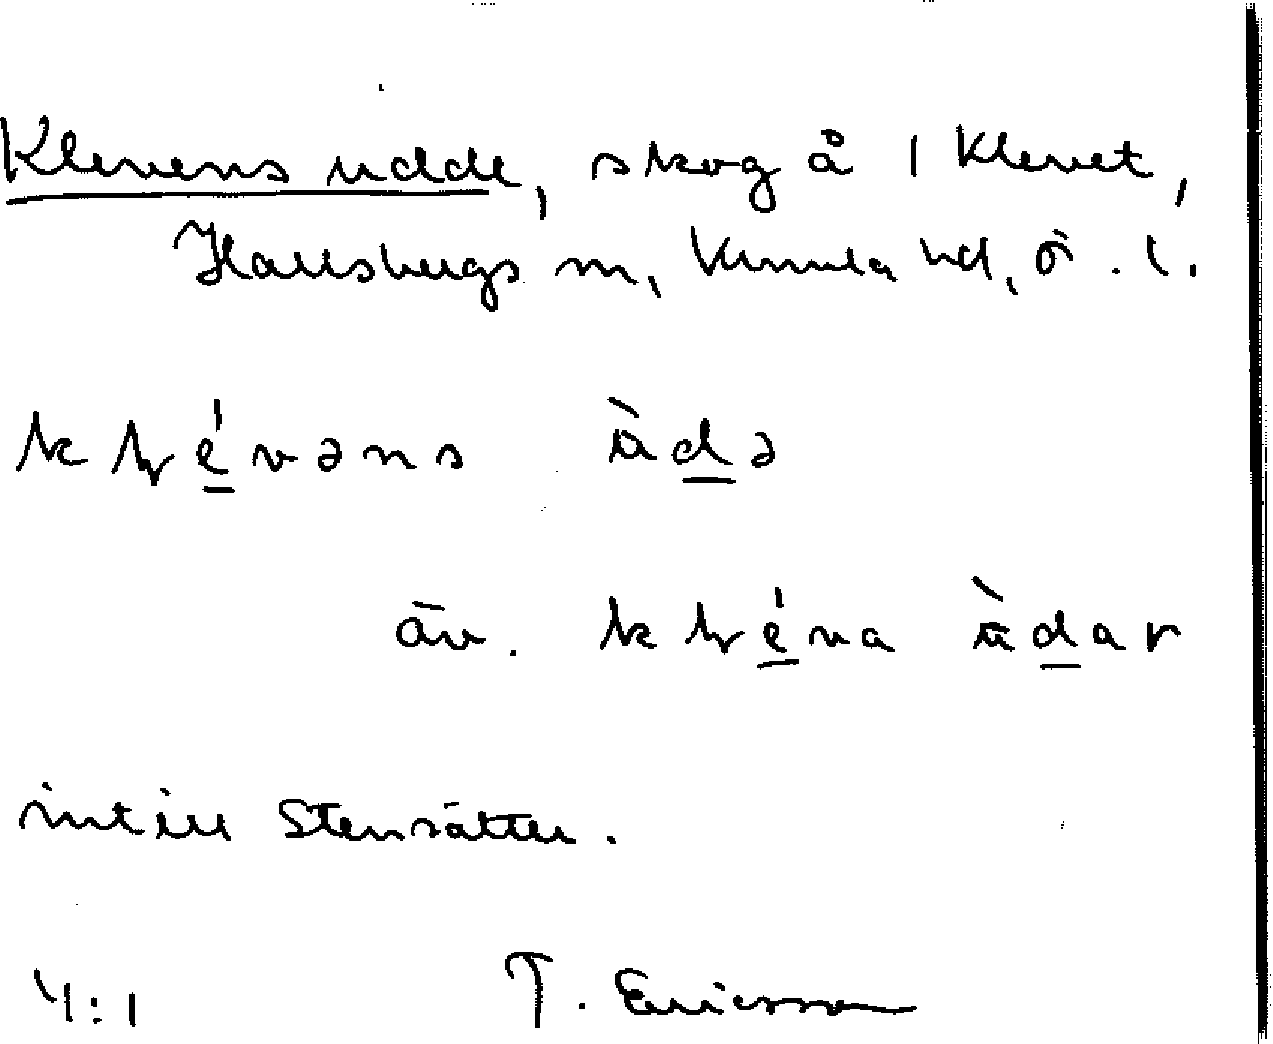 Klevens udde, skog å 1 Klevet,
Hallsbergs sn, Kumla hd, Ö. l.
klévəns ùdə
äv. kléna ùdar
intill Stensätter.
4:1 T. Ericsson